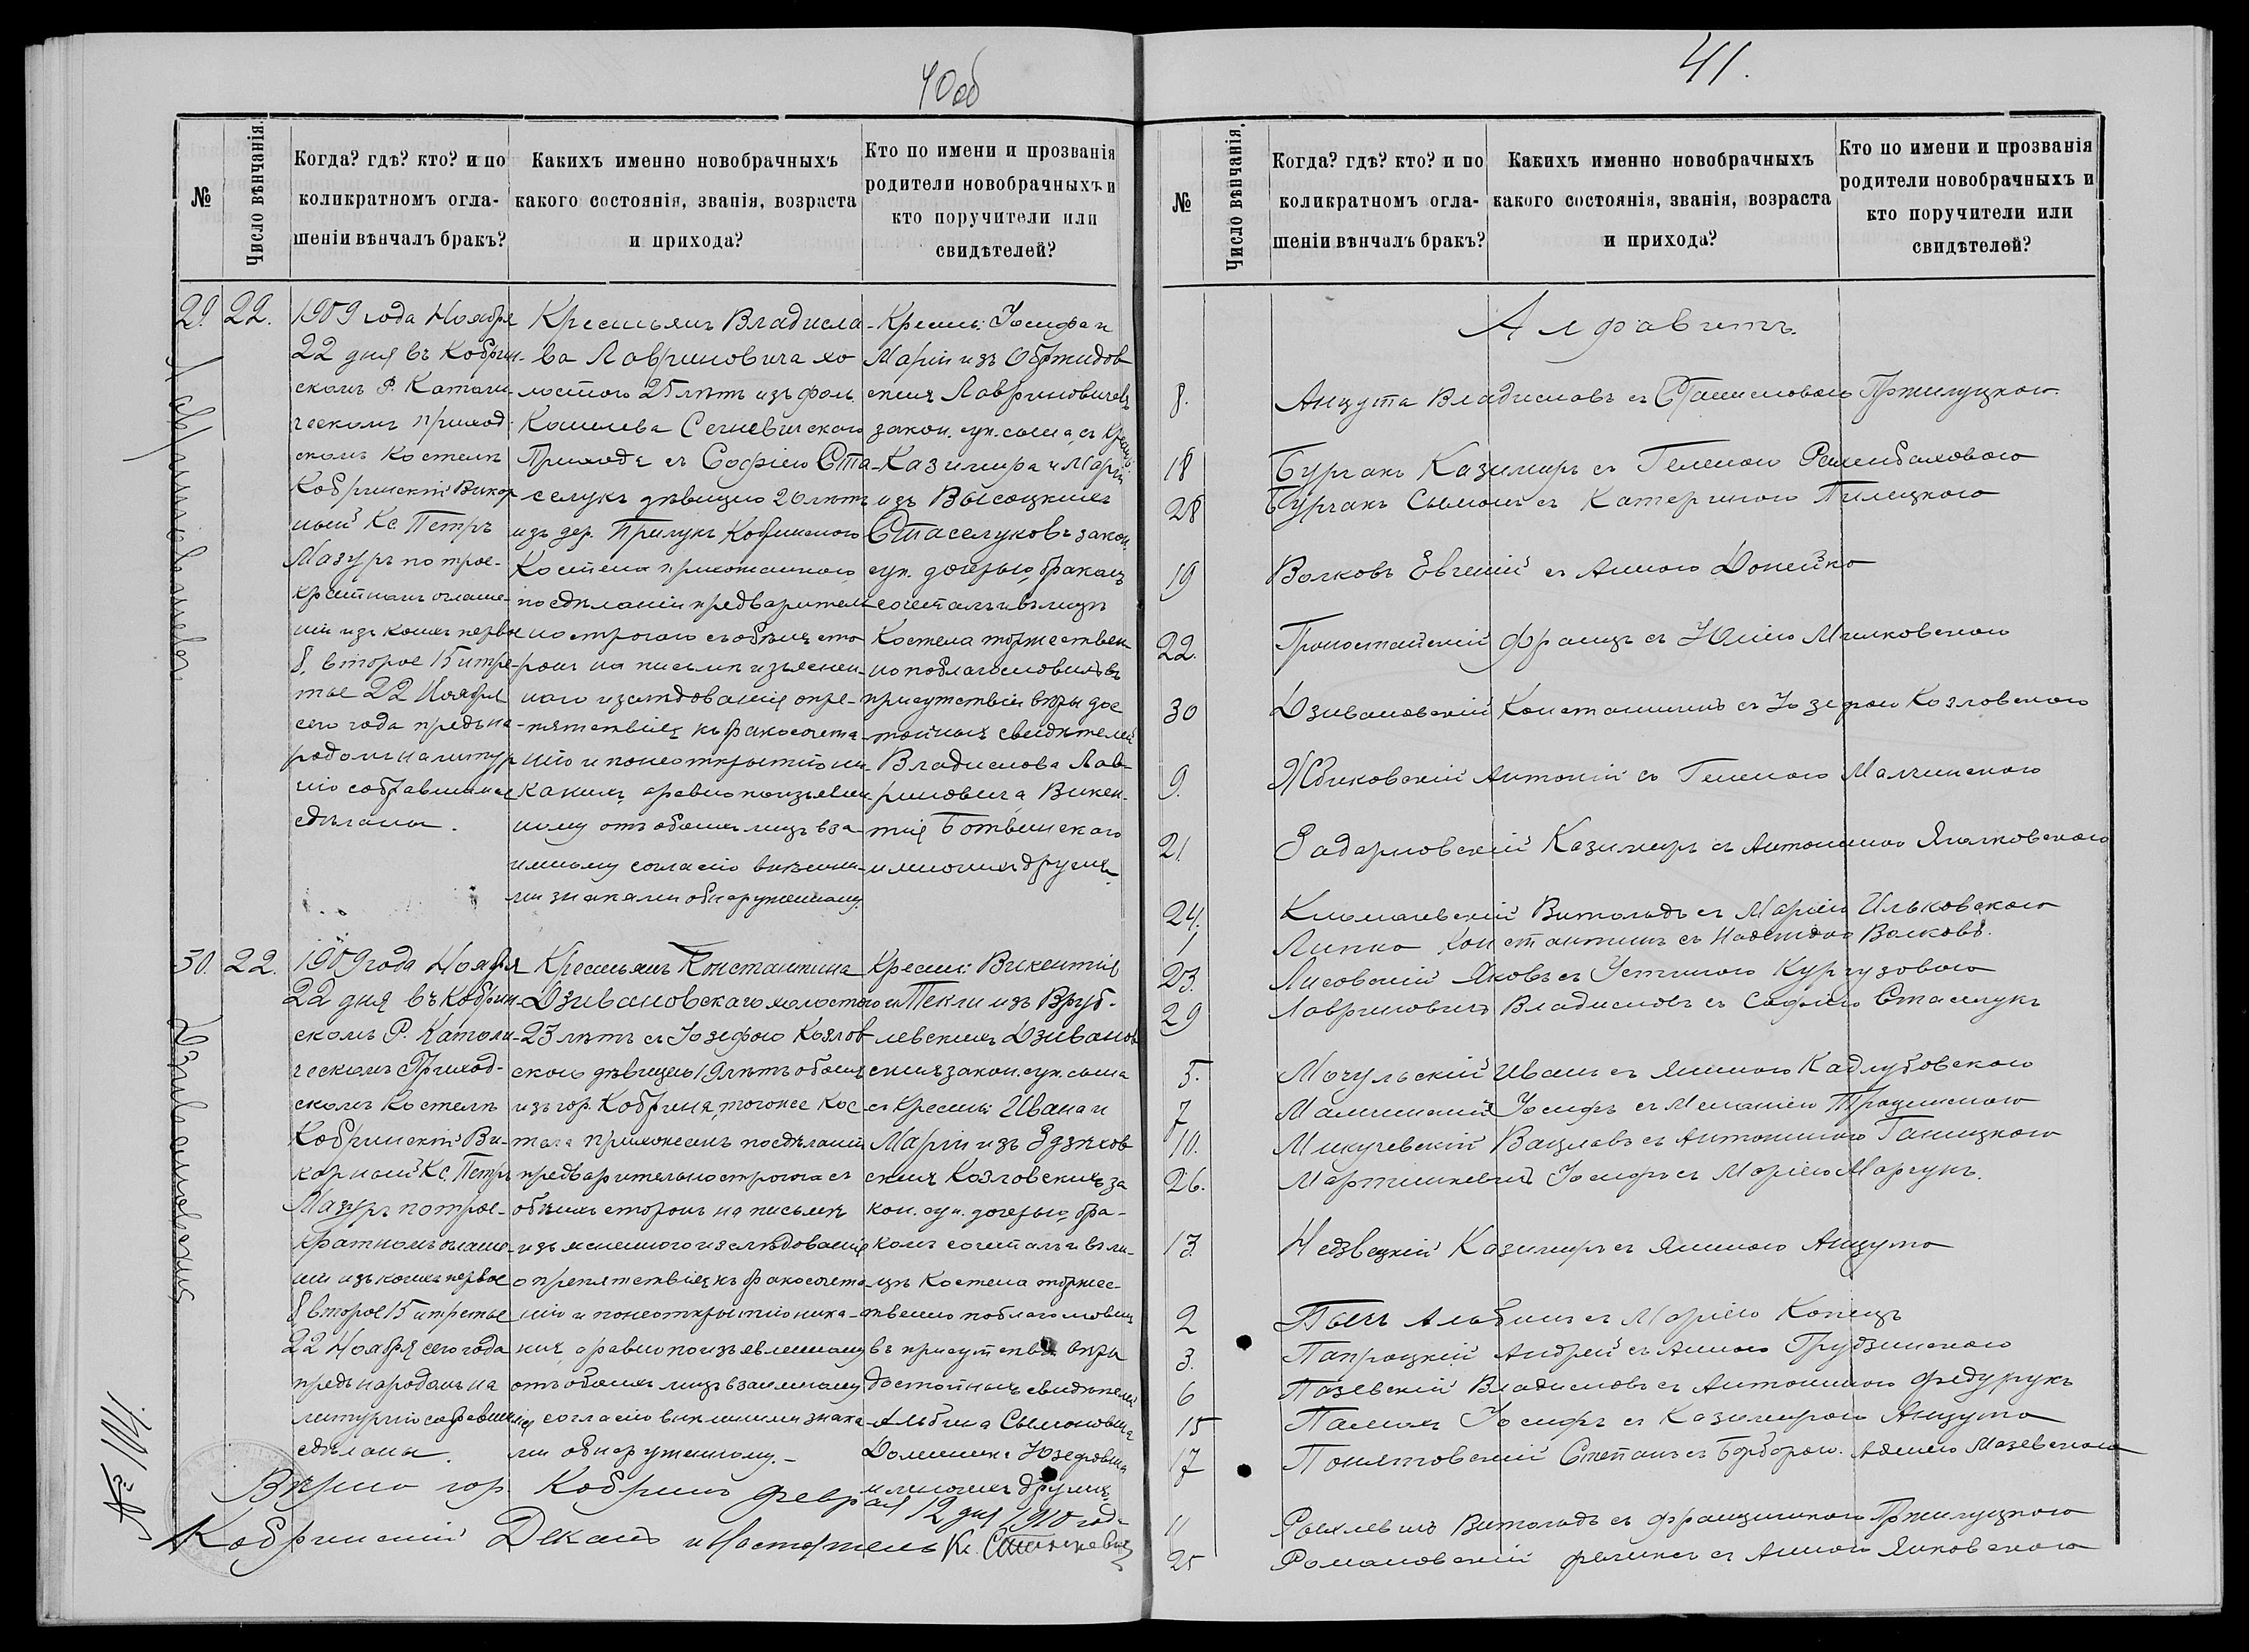 40об
№
Число вѣнчанія.
Когда? гдѣ? кто? и по
коликратномъ огла-
шеніи вѣнчалъ бракъ?
Какихъ именно новобрачныхъ
какого состоянія, званія, возраста
и прихода?
Кто по имени и прозванія
родители новобрачныхъ и
кто поручители или
свидѣтелей?
29. 22.
1909 года Ноября
22 дня въ Кобрин-
скомъ Р. Католи-
ческомъ приход-
скомъ Костелѣ
Кобринскій Викар
ный Кс. Петръ
Мазуръ по трое-
кратномъ оглаше-
ніи изъ коихъ первое
8, второе 15 и тре-
тье 22 Ноября
сего года предъ на-
родомъ на литур
гію собравшимся
сдѣланы.
Крестьянъ Владисла-
ва Лавриновича хо
лостого 25 лѣтъ изъ фоль.
Сегневичского
Прихода съ Софіею Ста-
селукъ дѣвицею 20 лѣтъ
изъ дер. Прилукъ Кобринского
Костела прихожанкою
по сдѣланіи предваритель
но строгого съ обѣихъ сто
ронъ на письмѣ изъяснен-
наго изслѣдованія о пре-
пятствіяхъ къ бракосочета-
нію и по неоткрытію ни-
какихъ, а равно по изъявлен-
ному отъ обоихъ лицъ вза-
имному согласію внѣшни-
ми знаками обнаруженному.
Крест. Іосифа и
Маріи изъ
скихъ Лавриновичевъ
закон. суп. сына, съ Крест.
Казимира и Маріи
изъ Высоцкихъ
Стаселуковъ закон.
суп. дочерью, бракомъ
сочеталъ и въ лицѣ
Костела торжествен
но поблагословилъ въ
присутствіи вѣры дос
тойныхъ свидѣтелей
Владислова Лав-
риновича, Викен-
тія Ботвинского
и многихъ другихъ.
30. 22.
1909 года Ноября
22 дня въ Кобрин-
скомъ Р. Католи-
ческомъ Приход-
скомъ Костелѣ
Кобринскій Ви-
карный Кс. Петръ
Мазуръ по трое-
кратномъ оглаше-
ніи изъ коихъ первое
8 второе 15 и третье
22 Ноября сего года
предъ народомъ на
литургію собравшимся
сдѣланы.
Крестьянъ Константина
Дзивановскаго холостого
23 лѣтъ съ Іозефою Козлов
скою дѣвицею 19 лѣтъ обоихъ
изъ гор. Кобрина, того же Кос
тела прихожанъ по сдѣланіи
предварительно строгого съ
обѣихъ сторонъ на письмѣ
изъясненного изслѣдованія
о препятствіяхъ къ бракосочета-
нію и по неоткрытію ника-
кихъ, а равно по изъявленному
отъ обоихъ лицъ взаимному
согласію внѣшними знака-
ми обнаруженному.-
Крест. Викентія
и Текли изъ Вруб-
левскихъ Дзиванов
скихъ закон. суп. сына
съ Крест. Ивана и
Маріи изъ
скихъ Козловскихъ за
кон. суп. дочерью, бра-
комъ сочеталъ и въ ли-
цѣ Костела торжес-
твенно поблагословилъ
въ присутствіи вѣры
достойныхъ свидѣтелей
Альбина Сымоновича
Доминика Юзефовича
и многихъ другихъ.
Лавриновичевъ
Дзивановскихъ
№ 104.
Вѣрно гор. Кобринъ февраля 12 дня 1910 года
Кобринскій Деканъ и Настоятель Кс.
41.
№
Число вѣнчанія,
Когда? гдѣ? кто? и по
коликратномъ огла-
шеніи вѣнчалъ бракъ?
Какихъ именно новобрачныхъ
какого состоянія, званія, возраста
и прихода?
Кто по имени и прозванія
родители новобрачныхъ и
кто поручители или
свидѣтелей?
Алфавитъ.
8. Анцута Владиславъ съ Станиславою Пржилуцкою.
18 Бурчакъ Казимиръ съ Геленою
28 Бурчакъ Сымонъ съ Катериною Пилецкою
19 Волковъ Евгеній съ Анною Донейко
22. Францъ съ Юліею Милковскою
30 Дзивановскій Константинъ съ Іозефою Козловскою
9. Жбиковскій Антоній съ Геленою Малчинскою
21 Задарновскій Казимиръ съ Антониною
24. Витольдъ съ Маріею Ильковскою
1 Липко Константинъ съ Надеждою Волковъ.
23. Лисовскій Яковъ съ Устиною Кургузовою
29 Лавриновичъ Владиславъ съ Софіею Стаселукъ
5. Мочульскій Иванъ съ Яниною Кадлубовскою
7 Іосифъ съ Меланіею
10. Микучевскій Вацлавъ съ Антониною Ганицкою
26. Мартинкевичъ Іосифъ съ Маріею Марчукъ.
13. Недзвецкій Казимиръ съ Яниною Анцуто
2 Альбинъ съ Маріею Копецъ
3. Папроцкій Андрей съ Анною Грудзинскою
6 Пазевскій Владиславъ съ Антониною Федурукъ
15 Іосифъ съ Казимирою Анцуто
17 Понятовскій Степанъ съ Барбарою. Адъліею Мазевскою
11 Витольдъ съ Францишкою Пржилуцкою
25 Романовскій Феликсъ съ Анною Янковскою